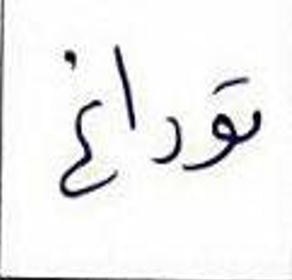 توداغ